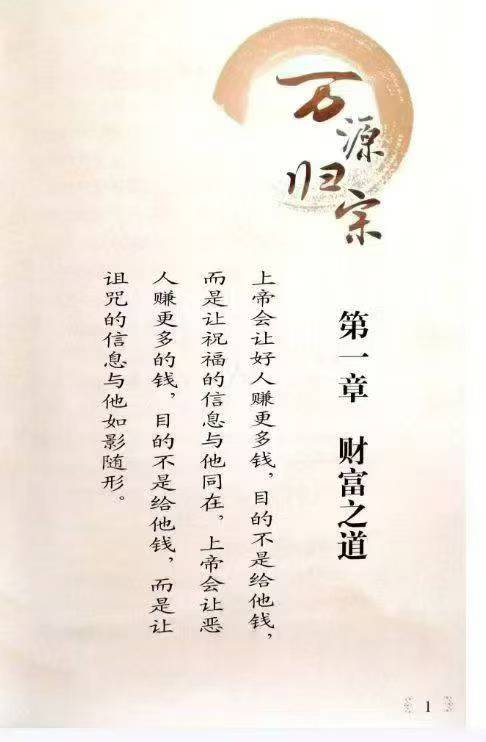 万源归宗
第一章 财富之道
上帝会让好人赚更多钱，目的不是给他钱，
而是让祝福的信息与他同在，上帝会让恶
人赚更多的钱，目的不是给他钱，而是让
诅咒的信息与他如影随形。
1